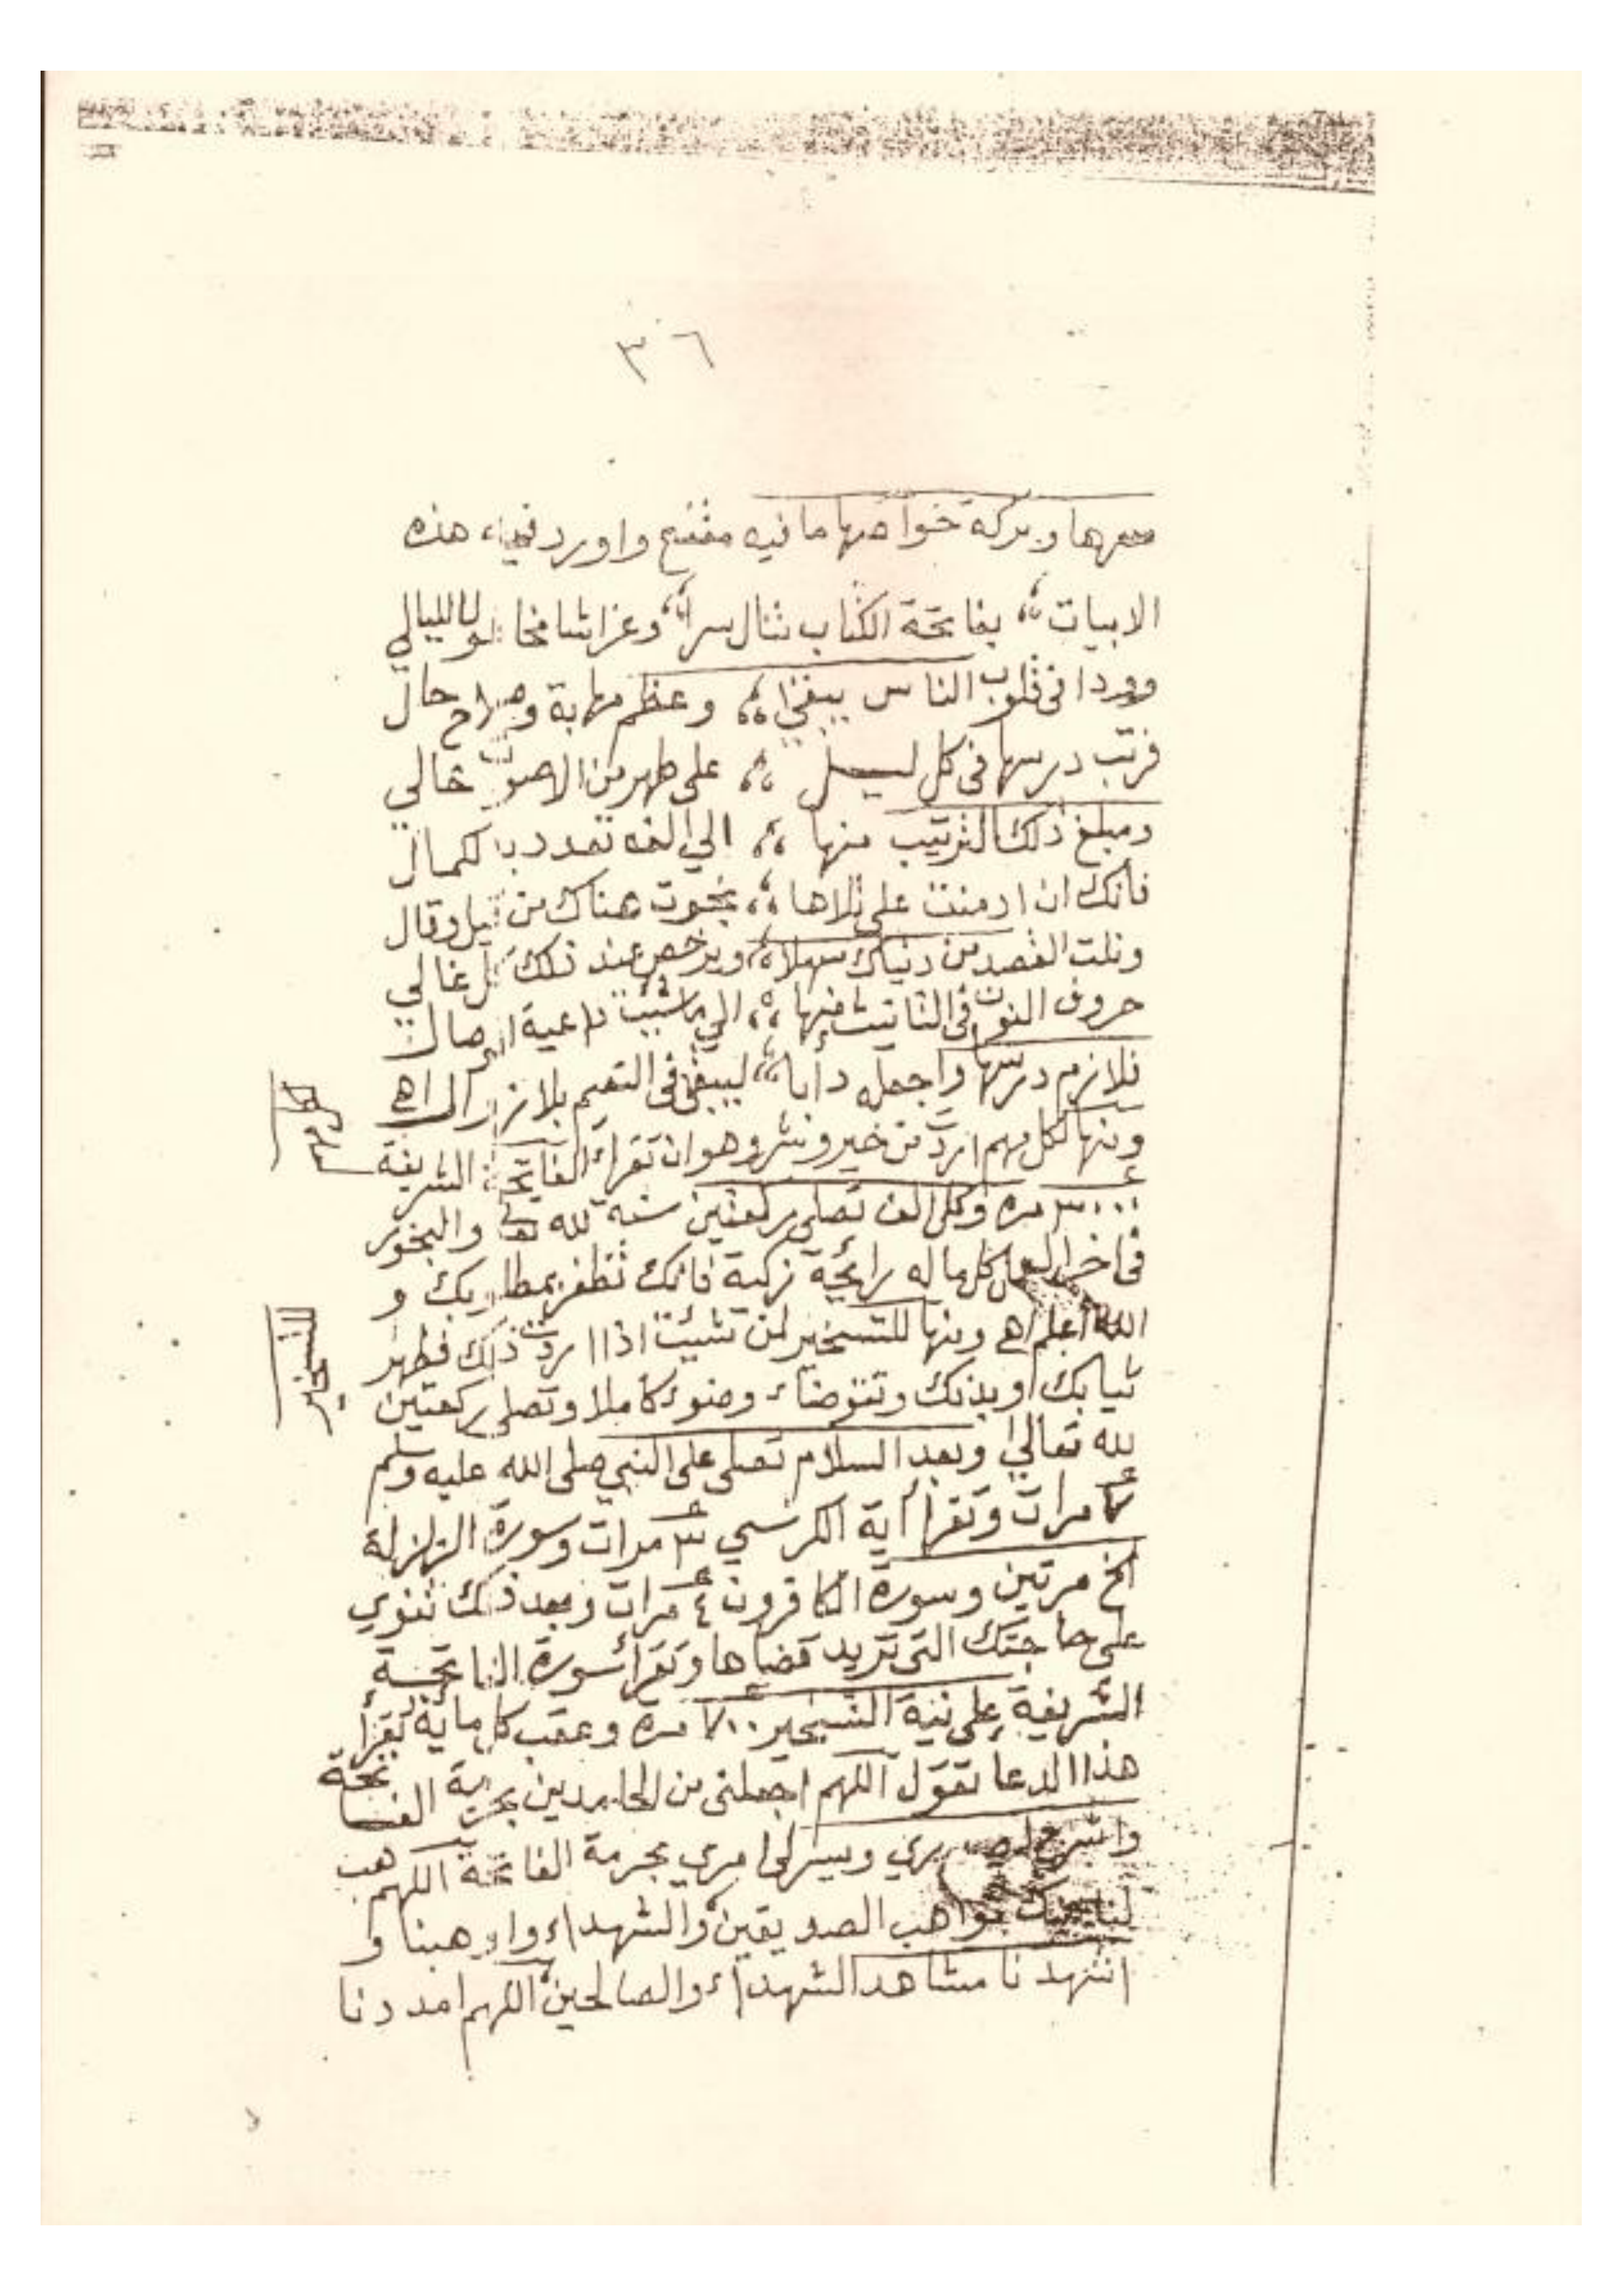 ٣٦
وبركة خواصها ما فيه مقنع واورد فيها هذه
الابيات بفاتحة الكتاب تنال سرا وعزا شامخا الليالي
وودا فى قلوب الناس يبقى وعظم مهابة وصلاح حال
فرتب درسها فى كل ليـل على طهر من الاصوات خالي
ومبلغ ذلك الترتيب منها الي الف تعدد بالكمال
فانك ان ادمنت على تلاها نجوت هناك من قيل وقال
ونلت القصد من دنياك سهلا ويرخص عند ذلك كل غالي
حروف النون فى التانيث فيها الي ما شئت داعية
فلازم درسها واجعله دأبا ليبقى فى النعيم بلا زوال اهـ
ومنها لكل مهم اردت من خير وشر وهو ان تقراء الفاتحة الشريفة
٣٠٠٠ مره وكل الف تصلى ركعتين سنة لله تعالى والبخور
فى اخر العمل كل ما له رائحة زكية فانك تظفر بمطلوبك و
الله أعلم اهـ ومنها للتسخير لمن تشيئت اذا اردت ذلك فطهر
ثيابك او بدنك وتتوضاء وضوء كاملا وتصلى ركعتين
لله تعالي وبعد السلام تصلى على النبي صلى الله عليه وسلم
٧ مرات وتقرأ أية الكرسي ٣ مرات وسورة الزلزلة
الخ مرتين وسورة الكافرون ٤ مرات وبعد ذلك تنوي
على حاجتك التى تريد قضاها وتقرأ سورة الفاتحـة
الشريفة على نية التسخير ٧٠٠ مرة وعقب كل ماية تقرأ
هذا الدعا تقول اللهم اجعلنى من الحامدين بحرمة الفاتحة
واشرح لي صدري ويسر لى امري بحرمة الفاتحة اللهم هب
لنا مواهب الصديقين والشهداء و
اشهدنا مشاهد الشهداء والصالحين اللهم امددنا
للتسخير